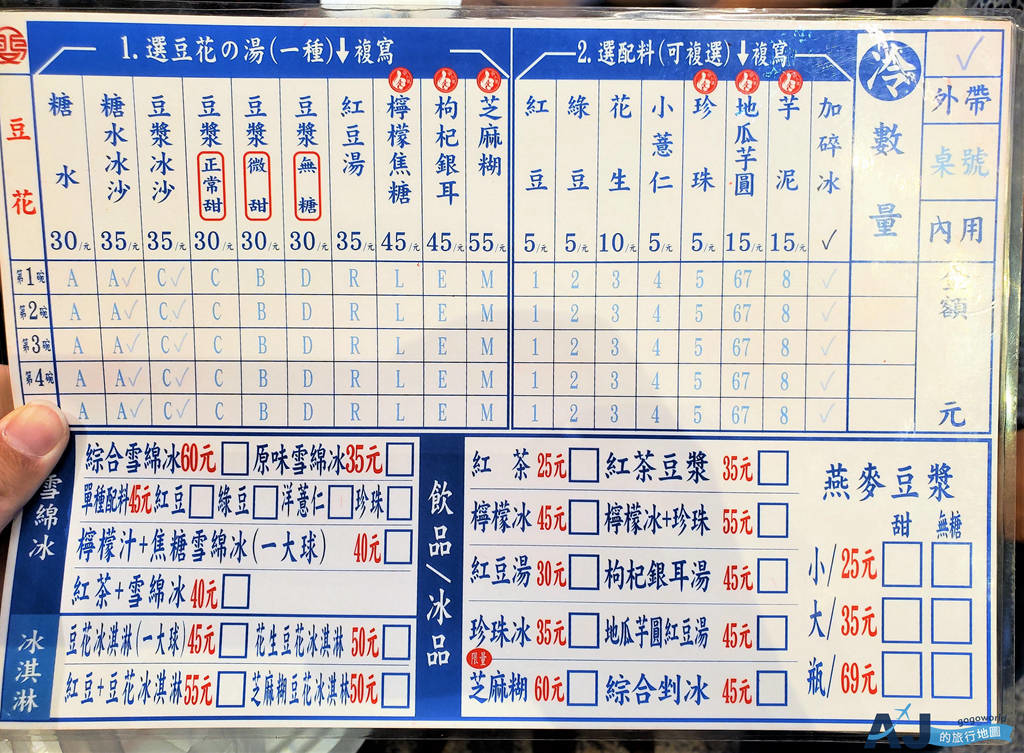 豆花
1.選豆花の湯(一種)↓複寫
2.選配料(可複選)↓複寫
冷
數量
✓
外帶
桌號
內用
糖水 30/元
糖水冰沙 35/元
豆漿冰沙 35/元
豆漿 正常甜 30/元
豆漿 微甜 30/元
豆漿 無糖 30/元
紅豆湯 35/元
檸檬焦糖 45/元
枸杞銀耳 45/元
芝麻糊 55/元
紅豆 5/元
綠豆 5/元
花生 10/元
小薏仁 5/元
珍珠 5/元
地瓜芋圓 15/元
芋泥 15/元
加碎冰 ✓
金額
元
第1碗 A A✓ C✓ C B D R L E M 1 2 3 4 5 67 8 ✓
第2碗 A A✓ C✓ C B D R L E M 1 2 3 4 5 67 8 ✓
第3碗 A A✓ C✓ C B D R L E M 1 2 3 4 5 67 8 ✓
第4碗 A A✓ C✓ C B D R L E M 1 2 3 4 5 67 8 ✓
A A✓ C✓ C B D R L E M 1 2 3 4 5 67 8 ✓
雪綿冰
綜合雪綿冰60元 原味雪綿冰35元
單種配料45元 紅豆 綠豆 洋薏仁 珍珠
檸檬汁+焦糖雪綿冰(一大球) 40元
紅茶+雪綿冰40元
冰淇淋
豆花冰淇淋(一大球)45元 花生豆花冰淇淋 50元
紅豆+豆花冰淇淋55元 芝麻糊豆花冰淇淋50元
飲品/冰品
紅茶 25元 紅茶豆漿 35元
檸檬冰 45元 檸檬冰+珍珠 55元
紅豆湯 30元 枸杞銀耳湯 45元
珍珠冰 35元 地瓜芋圓紅豆湯 45元
限量
芝麻糊 60元 綜合剉冰 45元
燕麥豆漿
甜 無糖
小/25元
大/35元
瓶/69元
AJ
gogoworld
的旅行地圖